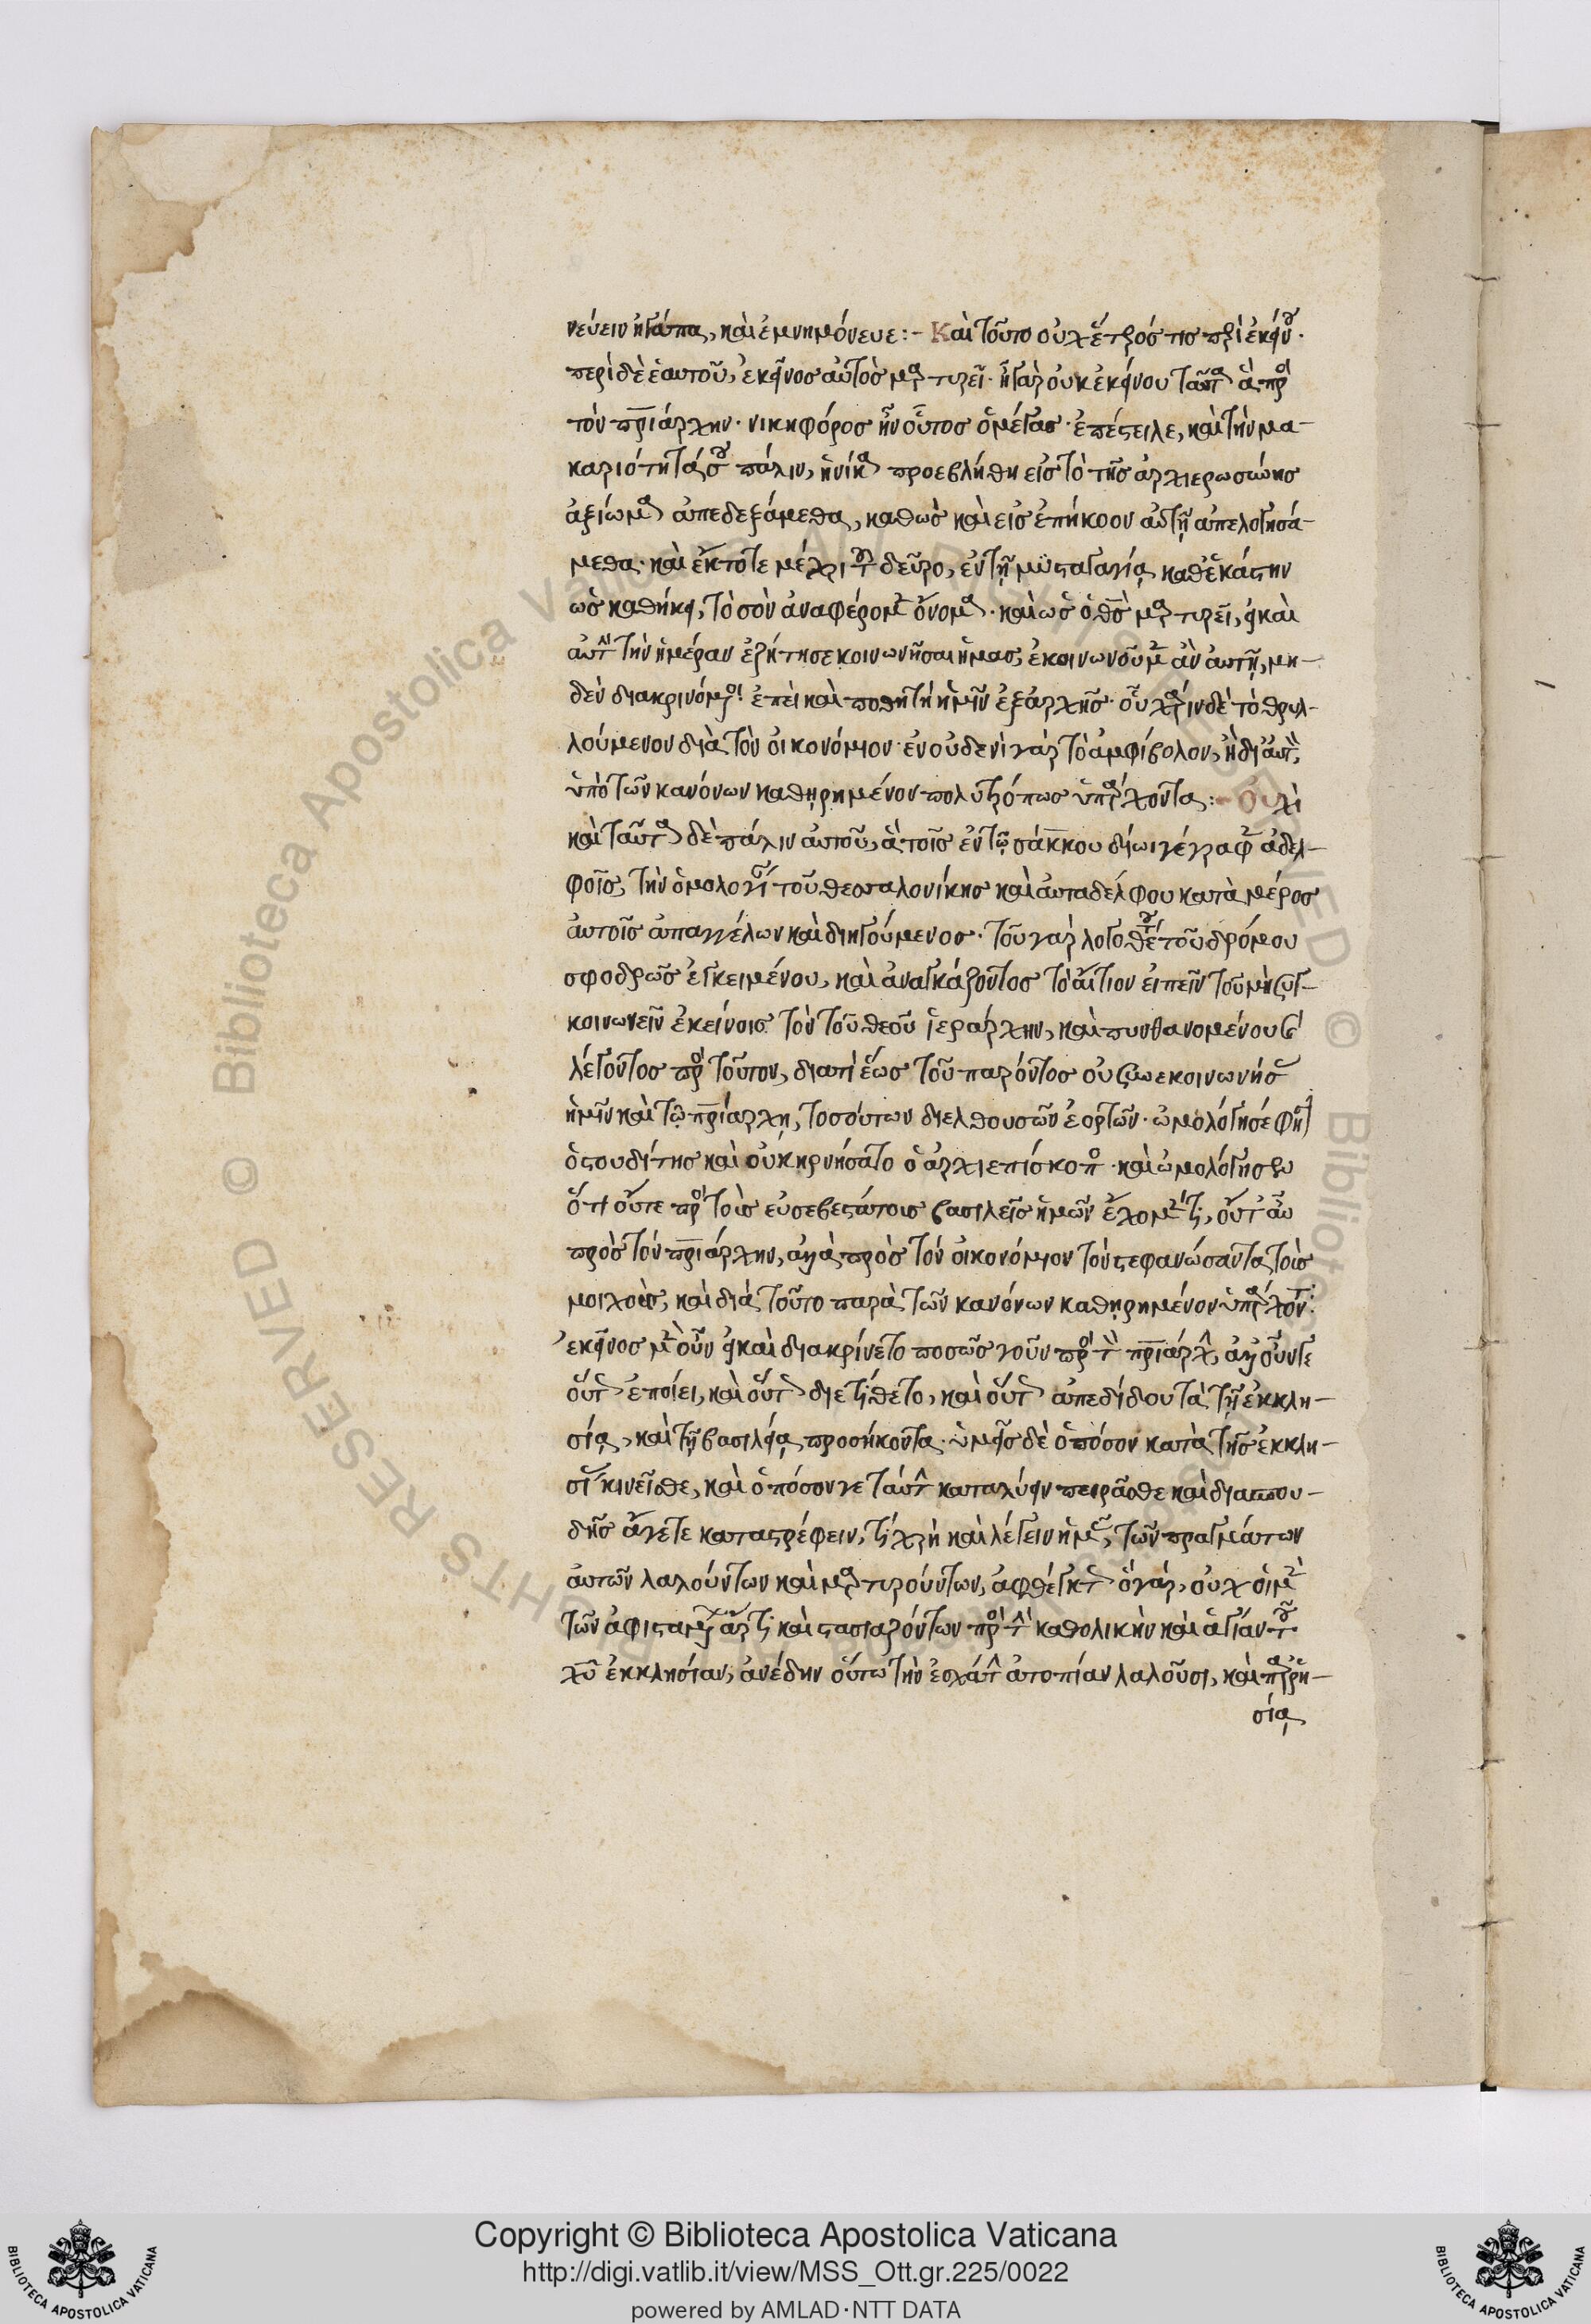 νεύειν ἠγάπα, καὶ ἐμνημόνευε:– Καὶ τοῦτο οὐχ ἕτερός τις περὶ ἐκείνου·
περὶ δὲ ἑαυτοῦ, ἐκεῖνος αὐτὸς μαρτυρεῖ· ἢ γὰρ οὐκ ἐκείνου ταῦτα ἃ πρὸς
τὸν πριάρχην· νικηφόρος ἦν οὗτος ὁ μέγας· ἐπέστειλε, καὶ τὴν μα–
καριότητά σου πάλιν, ἡνίκα προεβλήθη εἰς τὸ τῆς ἀρχιερωσύνης
ἀξίωμα ἀπεδεξάμεθα, καθὼς καὶ εἰς ἐπήκοον αὐτῇ ἀπελογησά–
μεθα· καὶ ἔκτοτε μέχρι τοῦ δεῦρο, ἐν τῇ μυσταγωγίᾳ καθ᾽ἑκάστην
ὡς καθήκει, τὸ σὸν ἀναφέρομεν ὄνομα· καὶ ὡς ὁ θς μαρτυρεῖ, εἰ καὶ
αὐτὴν τὴν ἡμέραν ἐζήτησε κοινωνῆσαι ἡμᾶς, ἐκοινωνοῦμεν ἂν αὐτῇ, μη–
δὲν διακρινόμενοι· ἐπεὶ καὶ ποθητὴ ἡμῖν ἐξ ἀρχῆς· οὗ χάριν δὲ τὸ θρυλ–
λούμενον διὰ τὸν οἰκονόμον· ἐν οὐδενὶ γὰρ τὸ ἀμφίβολον, ἢ δι᾽ αὐτὸν,
ὑπὸ τῶν κανόνων καθῃρημένον πολυτρόπως ὑπάρχοντα:– Οὐχὶ
καὶ ταῦτα δὲ πάλιν αὐτοῦ, ἃ τοῖς ἐν τῷ σάκκου δίωι γέγραφεν ἀδελ–
φοῖς, τὴν ὁμολογίαν τοῦ θεσσαλονίκης καὶ αὐταδέλφου κατὰ μέρος
αὐτοῖς ἀπαγγέλων καὶ διηγούμενος· τοῦ γὰρ λογοθέτου τοῦ δρόμου
σφοδρῶς ἐγκειμένου, καὶ ἀναγκάζοντος τὸ αἴτιον εἰπεῖν τοῦ μὴ συγ–
κοινωνεῖν ἐκείνοις τὸν τοῦ θεοῦ ἱεράρχην, καὶ πυνθανομένου καὶ
λέγοντος πρὸς τοῦτον, διατί ἕως τοῦ παρόντος οὐ συνεκοινώνησας
ἡμῖν καὶ τῷ πριάρχῃ, τοσούτων διελθουσῶν ἑορτῶν· ὡμολόγησέ φησιν
ὁ στουδίτης καὶ οὐκ ἠρνήσατο ὁ ἀρχιεπίσκοπος· καὶ ὡμολόγησεν
ὅτι οὔτε πρὸς τοὺς εὐσεβεστάτους βασιλεῖς ἡμῶν ἔχομέν τι, οὔτ᾽ αὖ
πρὸς τὸν πριάρχην, ἀλλὰ πρὸς τὸν οἰκονόμον τὸν στεφανώσαντα τοὺς
μοιχοὺς, καὶ διὰ τοῦτο παρὰ τῶν κανόνων καθῃρημένον ὑπάρχοντα·
ἐκεῖνος μὲν οὖν εἰ καὶ διακρίνετο ποσῶς γοῦν πρὸς τὸν πριάρχην, ἀλλ᾽ οὖν γε
οὕτως ἐποίει, καὶ οὕτως διετίθετο, καὶ οὕτως ἀπεδίδου τὰ τῇ ἐκκλη–
σίᾳ, καὶ τῇ βασιλείᾳ προσήκοντα· ὑμεῖς δὲ ὁπόσον κατὰ τῆς ἐκκλη–
σίας κινεῖσθε, καὶ ὁπόσον γε ταύτην καταλύειν πειρᾶσθε καὶ διασπου–
δῆς ἄγετε καταστρέφειν, τί χρὴ καὶ λέγειν ἡμᾶς, τῶν πραγμάτων
αὐτῶν λαλούντων καὶ μαρτυρούντων, ἀφθέγκτως· ὁ γὰρ, οὐχ οἱ μὲν
τῶν ἀφισταμένων ἄρτι καὶ στασιαζόντων πρὸς τὴν καθολικὴν καὶ ἁγίαν τοῦ
χυ ἐκκλησίαν, ἀνέδην οὕτω τὴν ἐσχάτην ἀτοπίαν λαλοῦσι, καὶ παρρη–
σίᾳ
Copyright © Biblioteca Apostolica Vaticana
http://digi.vatlib.it/view/MSS_Ott.gr.225/0022
powered by AMLAD·NTT DATA